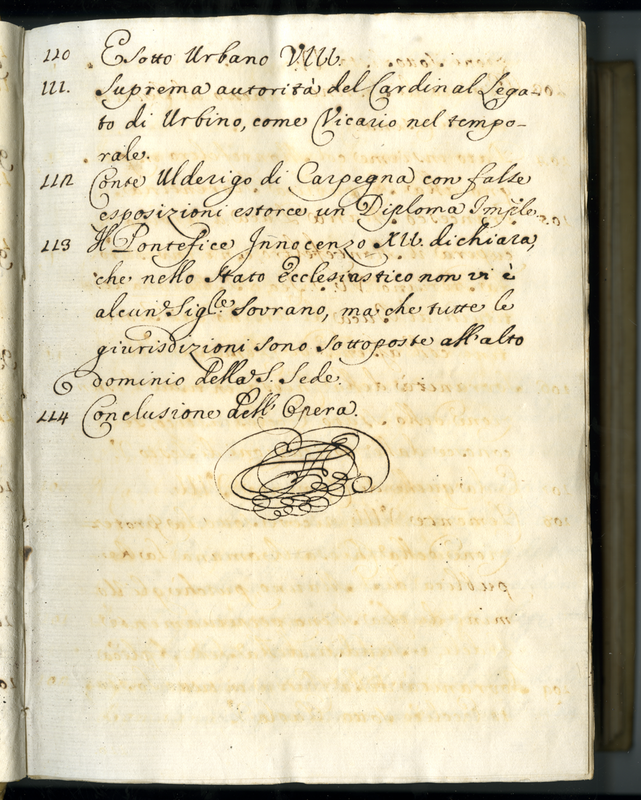 110 E sotto Urbano VIII.
111. Suprema autorità del Cardinal Lega-
to di Urbino, come Vicario nel tempo-
rale.
112 Conte Ulderigo di Carpegna con false
esposizioni estorce un Diploma Imple.
113 Il Pontefice Innocenzo XII. dichiara,
che nello Stato Ecclesiastico non vi è
alcun Sigle. Sovrano, ma che tutte le
giurisdizioni sono sottoposte all'alto
dominio della S. Sede.
114 Conclusione dell'Opera.